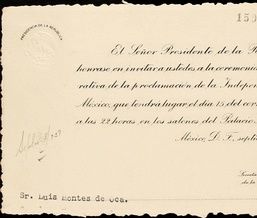 PRESIDENCIA DE LA REPUBLICA
El Señor Presidente de la
honrase en invitar a ustedes a la ceremonia
rativa de la proclamación de la
México, que tendrá lugar el día 15 del
a las 22 horas en los salones del Palacio
México, D. F.,
Sr. Luis Montes de Oca.